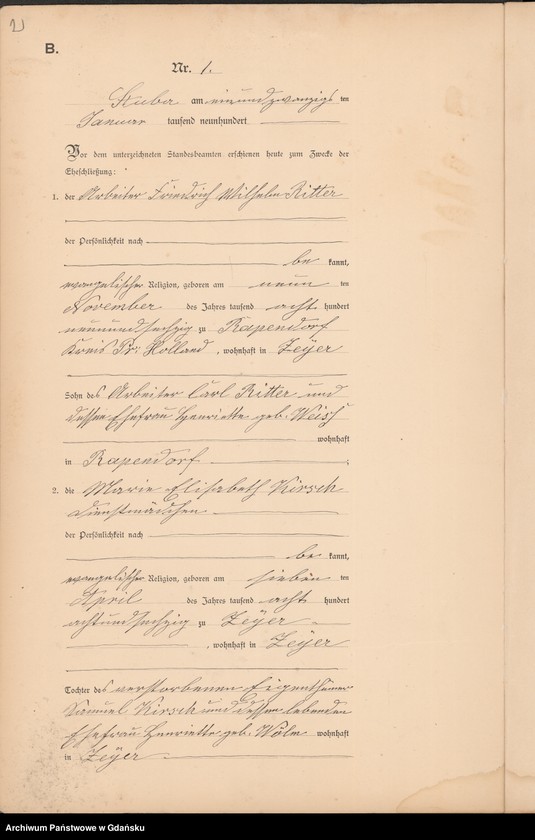 2)
B.
Nr. 1.
Stuba am einundzwanzigsten
Januar tausend neunhundert
Vor dem unterzeichneten Standesbeamten erschienen heute zum Zwecke der
Eheschließung:
1. der Arbeiter Friedrich Wilhelm Ritter
der Persönlichkeit nach
be kannt,
evangelischer Religion, geboren am neun ten
November des Jahres tausend acht hundert
neunundsechzig zu Rapendorf
Kreis Pr. Holland, wohnhaft in Zeyer
Sohn des Arbeiter Carl Ritter und
dessen Ehefrau Henriette geb. Weiß
wohnhaft
in Rapendorf ;
2. die Marie Elisabeth Kirsch
Dienstmädchen
der Persönlichkeit nach
be kannt,
evangelischer Religion, geboren am sieben ten
April des Jahres tausend acht hundert
achtundsechzig zu Zeyer
, wohnhaft in Zeyer
Tochter des verstorbenen Eigenthümer
Samuel Kirsch und dessen lebenden
Ehefrau Henriette geb. Wölm wohnhaft
in Zeyer
Archiwum Państwowe w Gdańsku